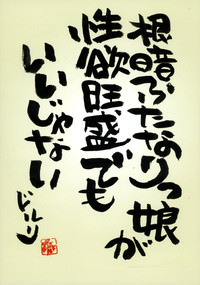 根暗ふたなりっ娘が
性欲旺盛でも
いいじゃない